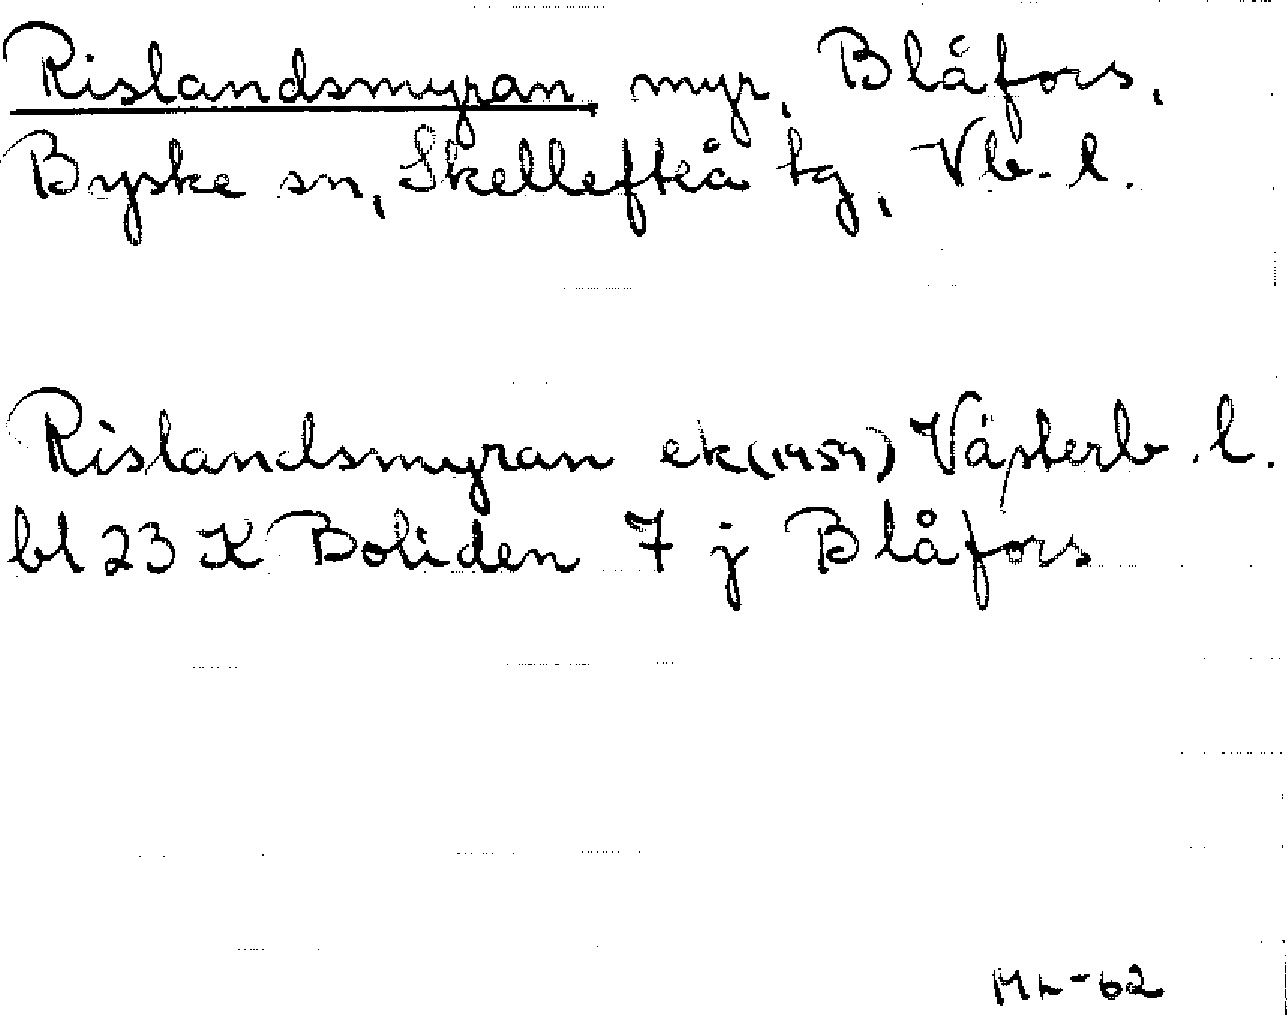 Rislandsmyran myr, Blåfors,
Byske sn, Skellefteå tg, Vb. l.
Rislandsmyran ek (1959) Västerb. l.
bl 23 K Boliden 7 j Blåfors
ML-62